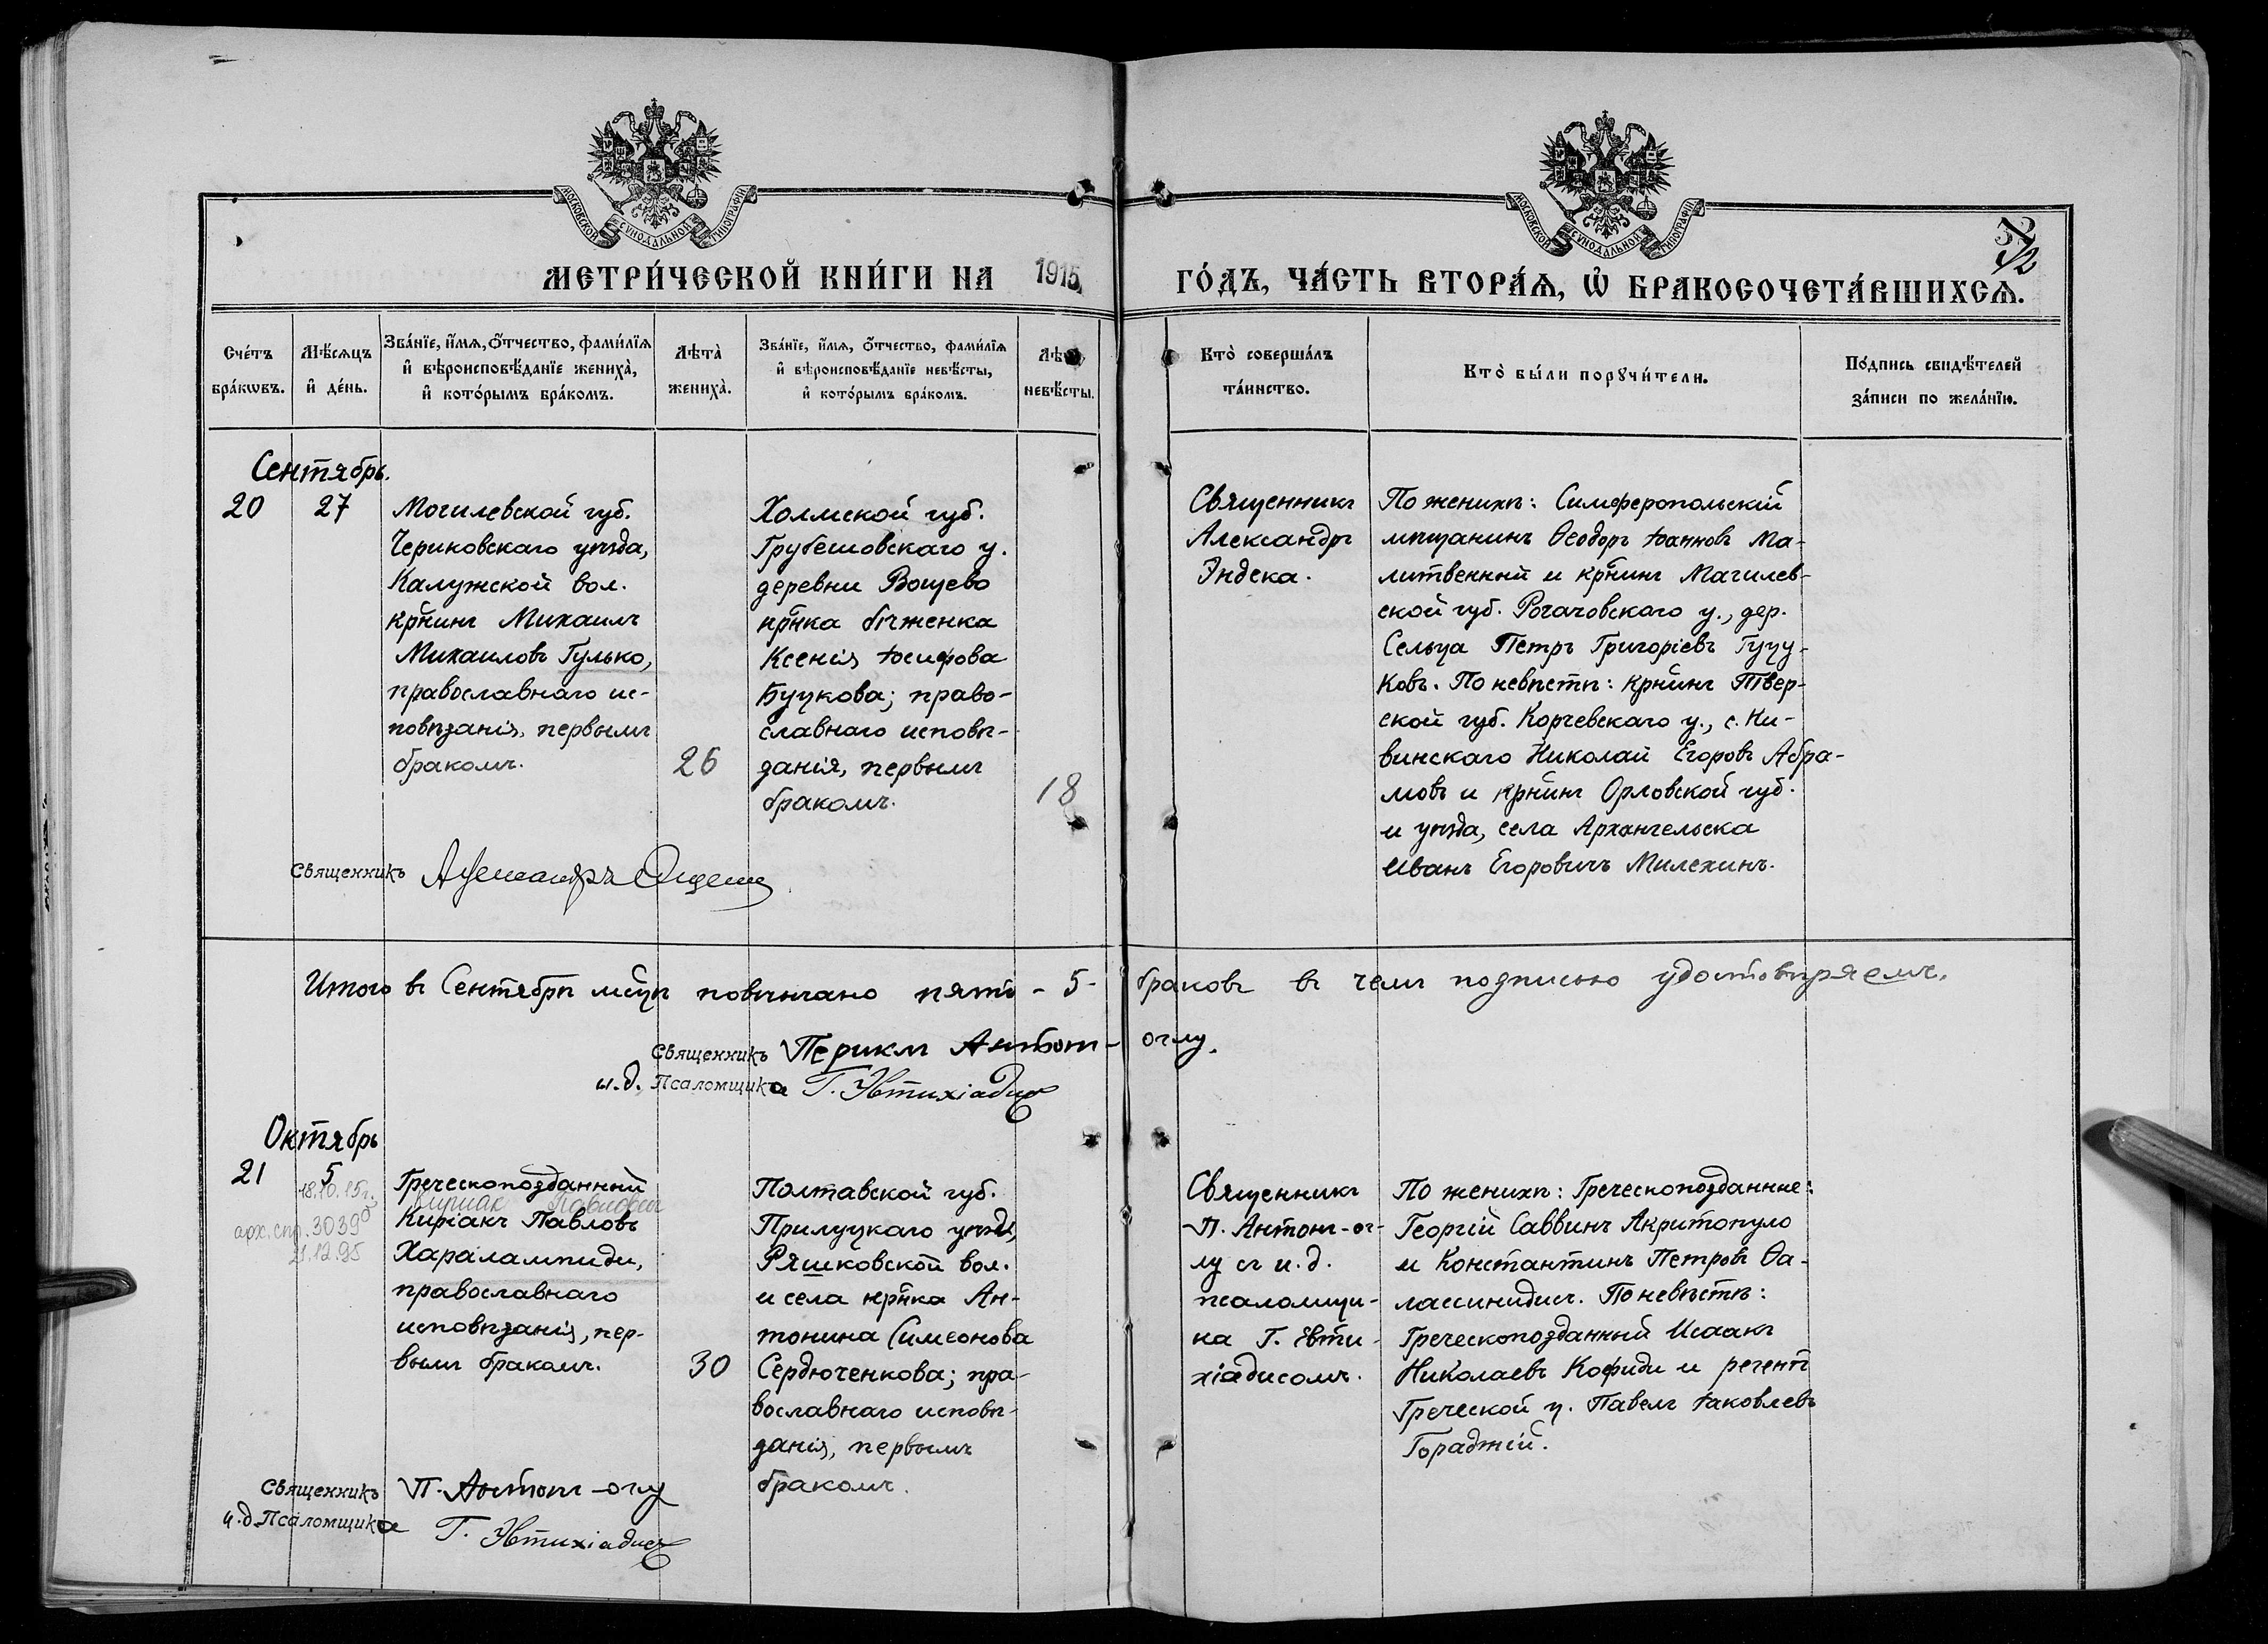 МОСКОВСКОЙ СУНОДАЛЬНОЙ ТИПОГРАФІИ
МОСКОВСКОЙ СУНОДАЛЬНОЙ ТИПОГРАФІИ
МЕТРИ́ЧЕСКОЙ КНИ́ГИ НА 1915 ГО́ДЪ, ЧА́СТЬ ВТОРА́Ѧ, Ѡ҆ БРАКОСОЧЕТА́ВШИХСѦ.
Сче́тъ
бра́кѡвъ.
Мѣ́сѧцъ
и҆ де́нь.
Зва́нїе, и҆́мѧ, ѻ҆́тчество, фами́лїѧ
и҆ вѣроисповѣ́данїе жениха̀,
и҆ кото́рымъ бра́комъ.
Лѣта̀
жениха̀.
Зва́нїе, и҆́мѧ, ѻ҆́тчество, фами́лїѧ
и҆ вѣроисповѣ́данїе невѣ́сты,
и҆ кото́рымъ бра́комъ.
невѣ́сты.
Кто̀ соверша́лъ
та́инство.
Кто̀ бы́ли порꙋчи́тели.
По́дпись свидѣ́телей
за́писи по жела́нїю.
Сентябрь.
20
27
Могилевской губ.
Чериковскаго уѣзда,
Калужской вол.
кр̃нинъ Михаилъ
Михаиловъ Гулько,
православнаго ис-
повѣданія, первымъ
бракомъ.
26
Холмской губ.
Грубешовскаго у.
деревни Вощево
кр̃нка бѣженка
Ксенія Іосифова
Буцкова; право-
славнаго исповѣ-
данія, первымъ
бракомъ.
18
Священникъ
Александръ
Эндека.
По женихѣ: Симферопольскій
мѣщанинъ Ѳеодоръ Іоанновъ Ма-
литвенный и кр̃нинъ Магилев-
ской губ. Рогачовскаго у., дер.
Сельца Петръ Григоріевъ Гуцу-
ковъ. По невѣстѣ: кр̃нинъ Твер-
ской губ. Корчевскаго у., с. Ки-
винскаго Николай Егоровъ Абра-
мовъ и кр̃нинъ Орловской губ.
и уѣзда, села Архангельска
Иванъ Егоровичъ Милехинъ.
Священникъ Александръ Эндека
Итого въ Сентябрѣ м̃цѣ повѣнчано пять - 5 - браковъ въ чемъ подписью удостовѣряемъ.
Священникъ Периклъ Антонъ-оглу.
и.д. Псаломщика Г. Эвтихіадис
Октябрь
21
5
18.10.15г.
арх. спр. 3039
21.12.95
Греческоподданный
Кириак Павлович
Киріакъ Павловъ
Харалампиди,
православнаго
исповѣданія, пер-
вымъ бракомъ.
30
Полтавской губ.
Прилуцкаго уѣзда,
Ряшковской вол.
и села кр̃нка Ан-
тонина Симеонова
Сердюченкова; пра-
вославнаго исповѣ-
данія, первымъ
бракомъ.
Священникъ
П. Антонъ-ог-
лу съ и.д.
псаломщи-
ка Г. Евти-
хіадисомъ.
По женихѣ: Греческоподданные:
Георгій Саввинъ Акритопуло
и Константинъ Петровъ Ѳа-
лассинидисъ. По невѣстѣ:
Греческоподданный Исаакъ
Николаевъ Кофиди и регентъ
Греческой ц. Павелъ Іаковлевъ
Гораджій.
Священникъ П. Антонъ-оглу
и.д. Псаломщика Г. Эвтихіадисъ